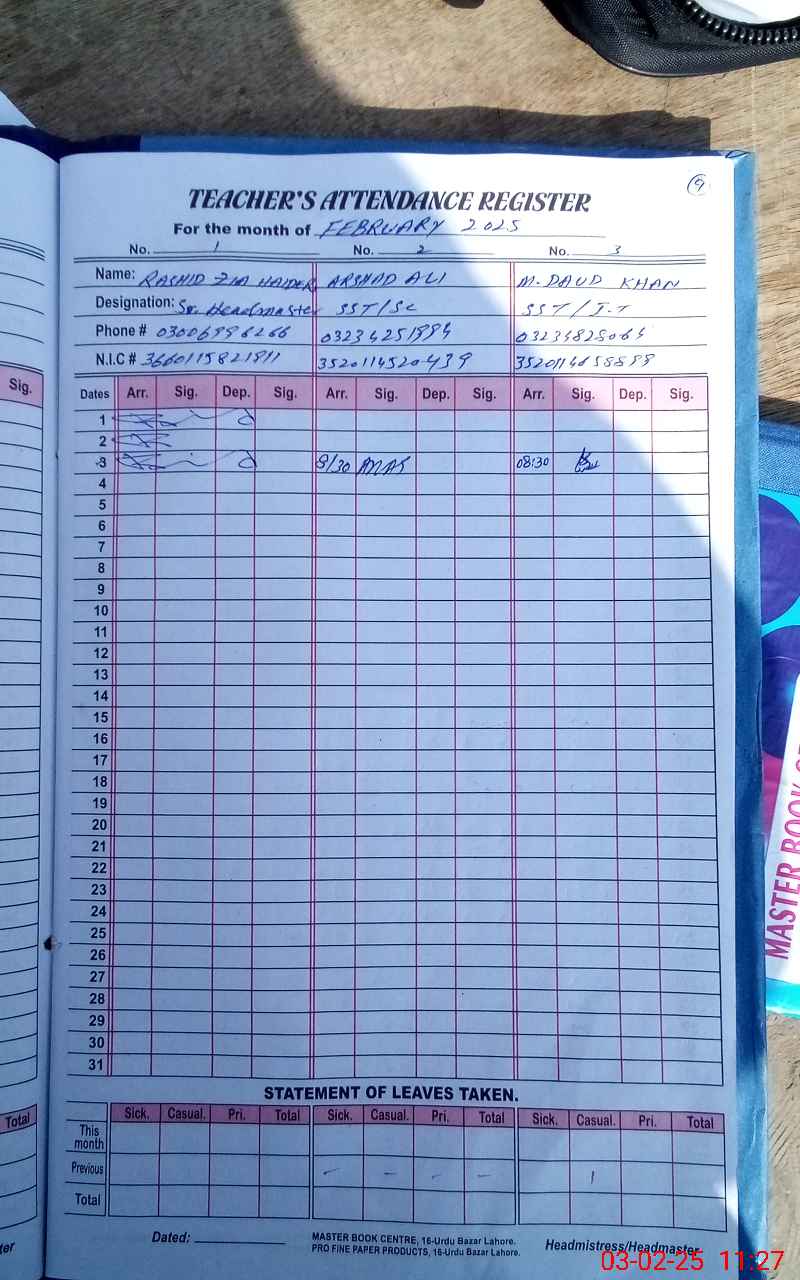 9
TEACHER'S ATTENDANCE REGISTER
For the month of FEBRUARY 2025
No. 1 No. 2 No. 3
Name: RASHID ZIA HAIDER ARSHAD ALI M. DAUD KHAN
Designation: Sr. Headmaster SST/Sc SST/I.T
Phone #
N.I.C #
Sig.
Dates Arr. Sig. Dep. Sig. Arr. Sig. Dep. Sig. Arr. Sig. Dep. Sig.
1
2
3 8/30 08:30
4
5
6
7
8
9
10
11
12
13
14
15
16
17
18
19
20
21
22
23
24
25
26
27
28
29
30
31
STATEMENT OF LEAVES TAKEN.
Total
Sick. Casual. Pri. Total Sick. Casual. Pri. Total Sick. Casual. Pri. Total
This
month
Previous - - - - 1
Total
Dated:
MASTER BOOK CENTRE, 16-Urdu Bazar Lahore.
PRO FINE PAPER PRODUCTS, 16-Urdu Bazar Lahore.
Headmistress/Headmaster
MASTER BOOK
03-02-25 11:27